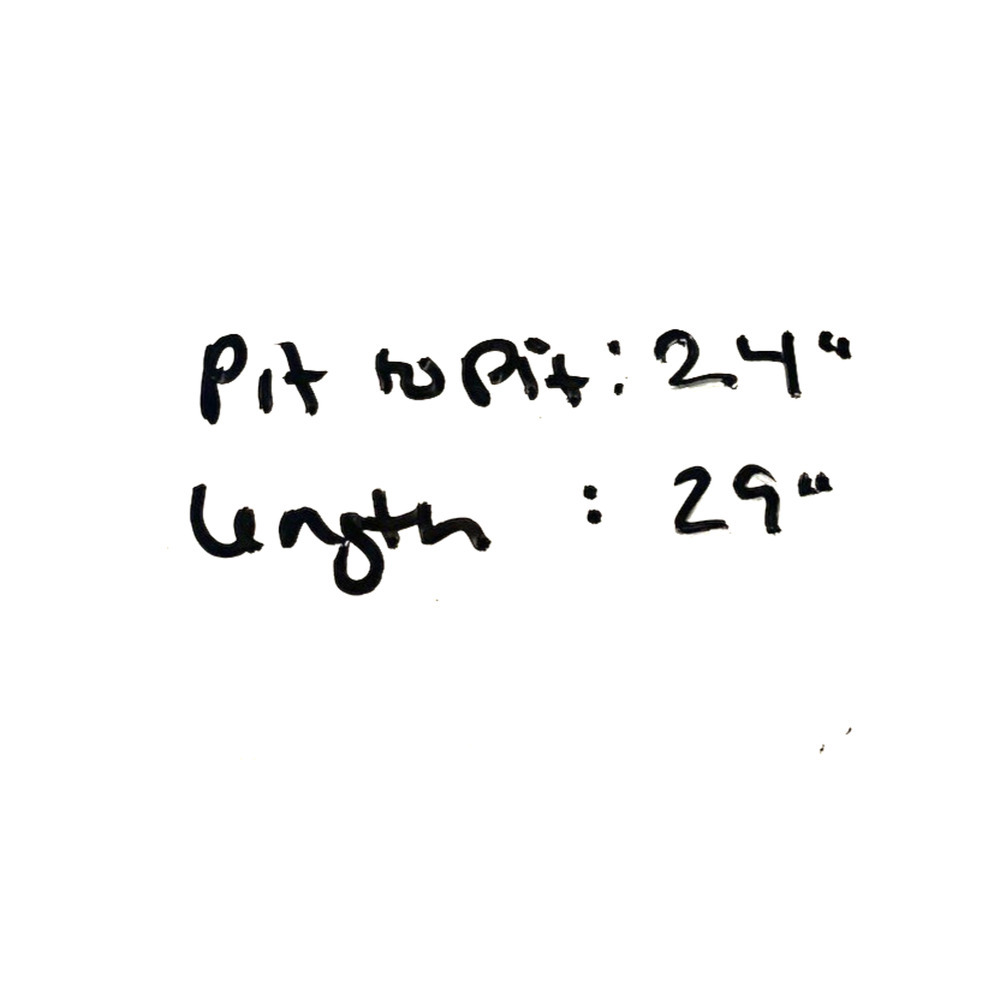 Pit to Pit: 24"
length : 29"